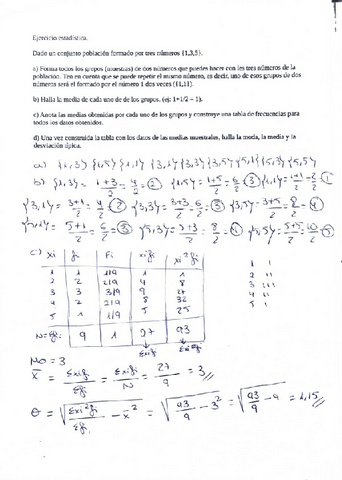 Ejercicio estadística.
Dado un conjunto población formado por tres números {1,3,5}.
a) Forma todos los grupos (muestras) de dos números que puedes hacer con les tres números de la
población. Ten en cuenta que se puede repetir el mismo número, es decir, uno de esos grupos de dos
números será el formado por el número 1 dos veces {11,11}.
b) Halla la media de cada uno de de los grupos. (ej: 1+1/2 = 1).
c) Anota las medias obtenidas por cada uno de los grupos y construye una tabla de frecuencias para
todos los datos obtenidos.
d) Una vez construida la tabla con los datos de las medias muestrales, halla la moda, la media y la
desviación típica.
a) {1,3} {1,5} {1,1} {3,1} {3,3} {3,5} {5,1} {5,3} {5,5}
b) {1,3} = 1+3/2 = 4/2 = 2 {1,5} = 1+5/2 = 6/2 = 3 {1,1} = 1+1/2 = 2/2 = 1
{3,1} = 3+1/2 = 4/2 = 2 {3,3} = 3+3/2 = 6/2 = 3 {3,5} = 3+5/2 = 8/2 = 4
{5,1} = 5+1/2 = 6/2 = 3 {5,3} = 5+3/2 = 8/2 = 4 {5,5} = 5+5/2 = 10/2 = 5
c) xi fi Fi xifi xi²fi
1 1 1/9 1 1 1 I
2 2 2/9 4 8 2 II
3 3 3/9 9 27 3 III
4 2 2/9 8 32 4 II
5 1 1/9 5 25 5 I
N=Σfi 9 1 27 93
Σxifi Σxi²fi
Mo = 3
x̄ = Σxifi/Σfi = Σxifi/N = 27/9 = 3
σ = √(Σxi²fi/Σfi - x̄²) = √(93/9 - 3²) = √(93/9 - 9) = 1,15